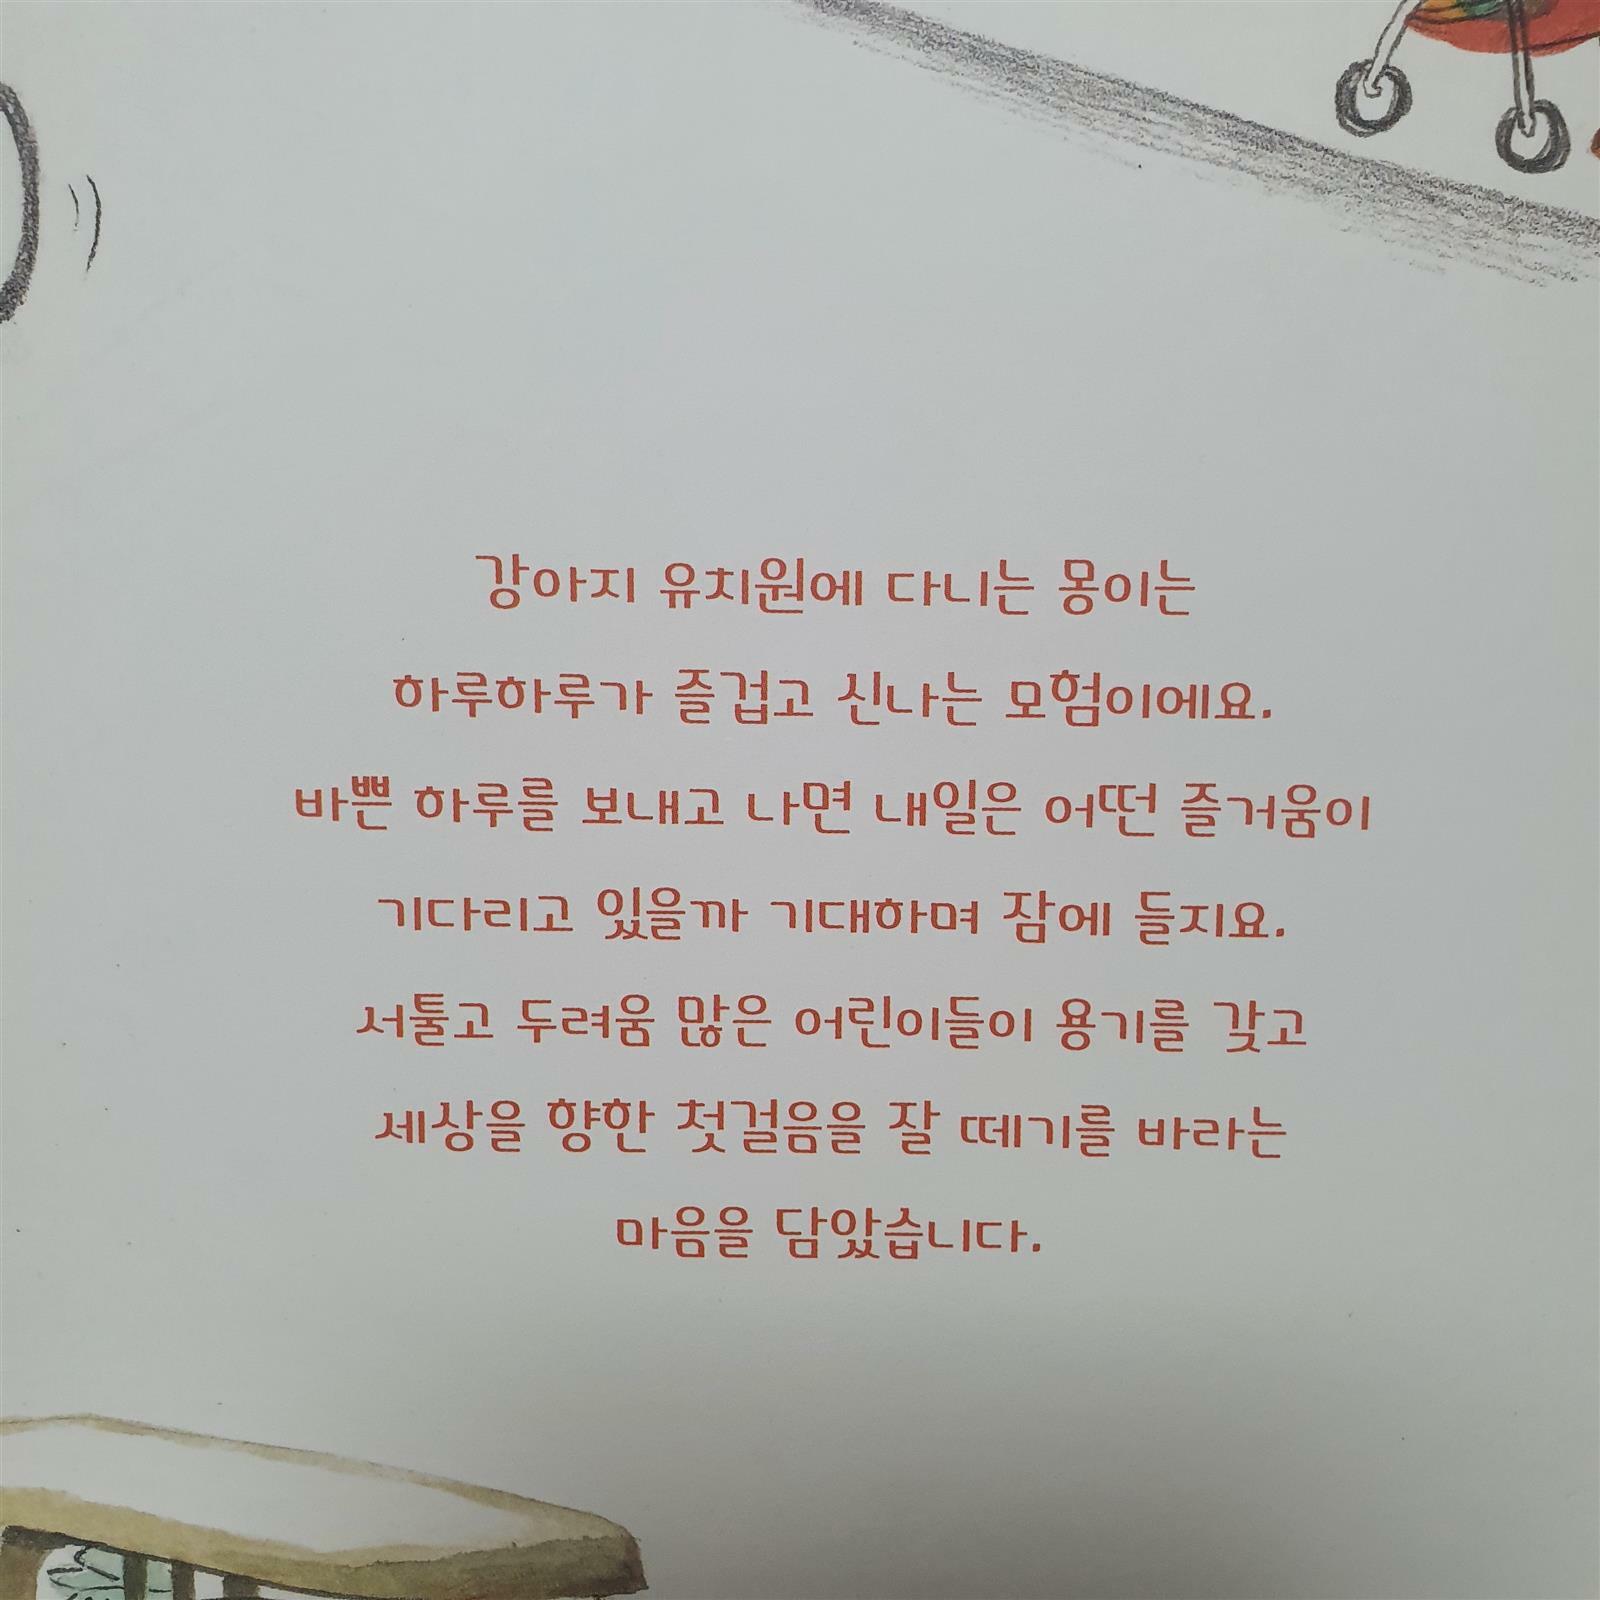 강아지 유치원에 다니는 몽이는
하루하루가 즐겁고 신나는 모험이에요.
바쁜 하루를 보내고 나면 내일은 어떤 즐거움이
기다리고 있을까 기대하며 잠에 들지요.
서툴고 두려움 많은 어린이들이 용기를 갖고
세상을 향한 첫걸음을 잘 떼기를 바라는
마음을 담았습니다.